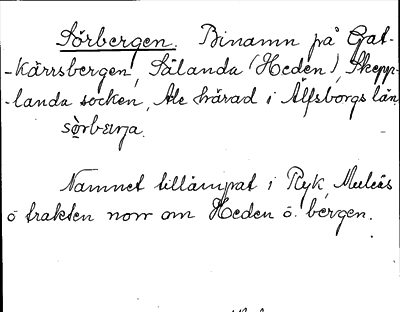 Sörbergen. Binamn på Gat-
-kärrsbergen, Sålanda (Heden), Skepp-
-landa socken, Ale härad i Älfsborgs län.
Namnet tillämpat i Ryk,
o trakten norr om Heden ö. bergen.